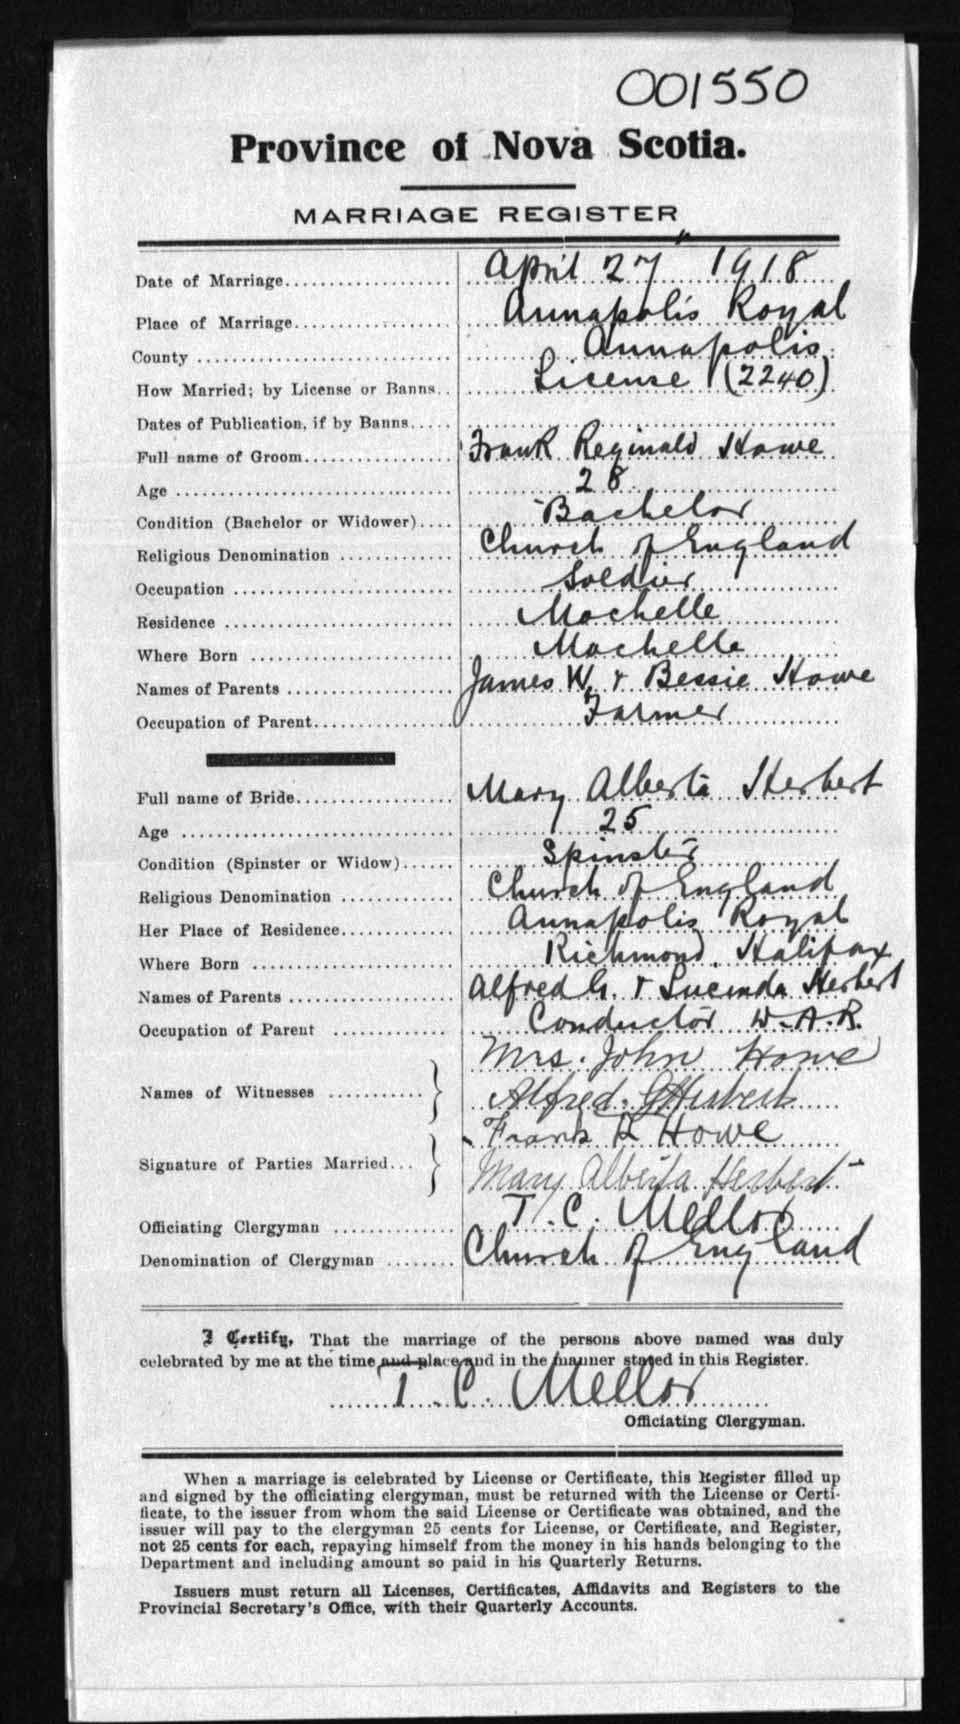 001550
Province of Nova Scotia.
MARRIAGE REGISTER
Date of Marriage.................... April 27" 1918
Place of Marriage.................. Annapolis Royal
County ............................. Annapolis
How Married; by License or Banns.. License (2240)
Dates of Publication, if by Banns.....
Full name of Groom.................. Frank Reginald Howe
Age ................................ 28
Condition (Bachelor or Widower).... Bachelor
Religious Denomination ............. Church of England
Occupation ......................... Soldier
Residence .......................... Mochelle
Where Born ......................... Mochelle
Names of Parents ................... James W. & Bessie Howe
Occupation of Parent................ Farmer
Full name of Bride.................. Mary Alberta Herbert
Age ................................ 25
Condition (Spinster or Widow)...... Spinster
Religious Denomination ............. Church of England
Her Place of Residence.............. Annapolis Royal
Where Born ......................... Richmond, Halifax
Names of Parents ................... Alfred G. & Lucinda Herbert
Occupation of Parent ............... Conductor W.A.R.
Mrs. John Howe
Names of Witnesses ...........
Alfred G Herbert
Frank R Howe
Signature of Parties Married...
Mary Alberta Herbert
Officiating Clergyman .............. T. C. Mellor
Denomination of Clergyman ........ Church of England
I Certify, That the marriage of the persons above named was duly
celebrated by me at the time and place and in the manner stated in this Register.
T. C. Mellor
Officiating Clergyman.
When a marriage is celebrated by License or Certificate, this Register filled up
and signed by the officiating clergyman, must be returned with the License or Certi-
ficate, to the issuer from whom the said License or Certificate was obtained, and the
issuer will pay to the clergyman 25 cents for License, or Certificate, and Register,
not 25 cents for each, repaying himself from the money in his hands belonging to the
Department and including amount so paid in his Quarterly Returns.
Issuers must return all Licenses, Certificates, Affidavits and Registers to the
Provincial Secretary's Office, with their Quarterly Accounts.